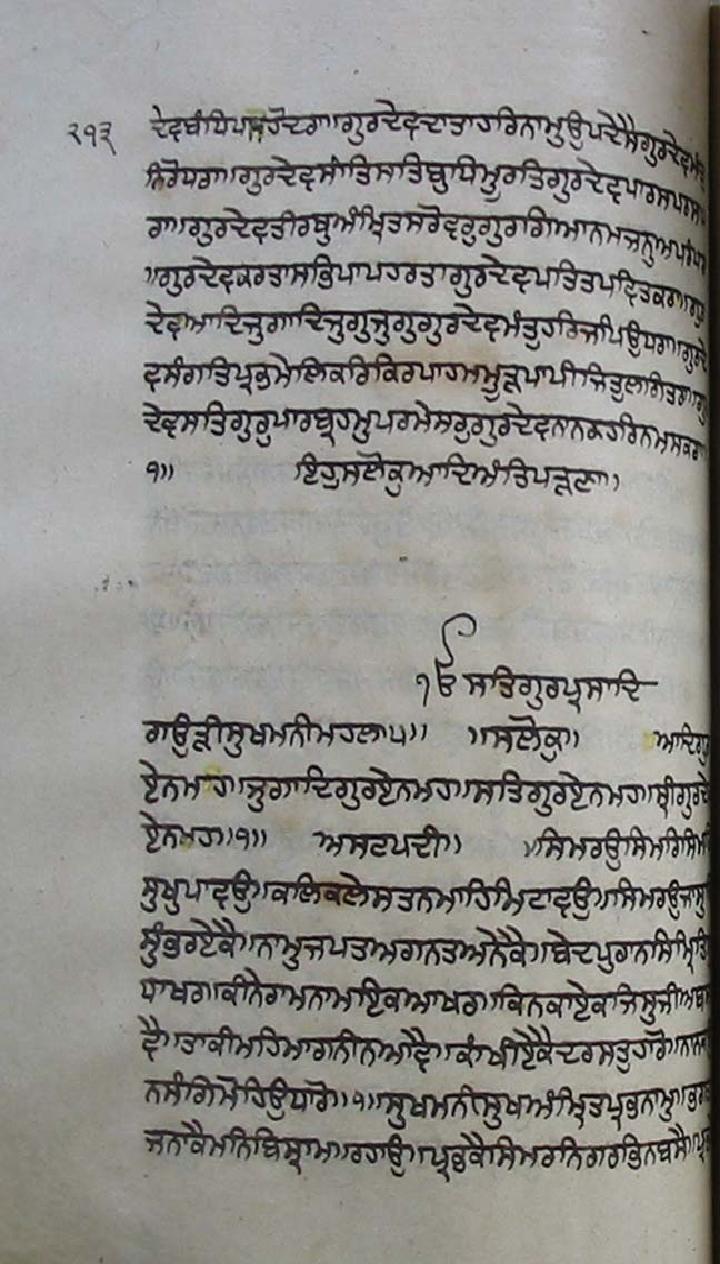 ੨੧੩ ਦੇਵਬੰਧਿਪਸਹੋਦਰਾ॥ਗੁਰਦੇਵਦਾਤਾਹਰਿਨਾਮੁਉਪਦੇਸੈਗੁਰਦੇਵਮੰਤੁ
ਨਿਰੋਧਰਾ॥ਗੁਰਦੇਵਸਾਂਤਿਸਤਿਬੁਧਿਮੂਰਤਿਗੁਰਦੇਵਪਾਰਸਪਰਸਪ
ਰਾ॥ਗੁਰਦੇਵਤੀਰਥੁਅੰਮ੍ਰਿਤਸਰੋਵਰੁਗੁਰਗਿਆਨਮਜਨੁਅਪਰੰਪਰਾ
॥ਗੁਰਦੇਵਕਰਤਾਸਭਿਪਾਪਹਰਤਾਗੁਰਦੇਵਪਤਿਤਪਵਿਤਕਰਾ॥ਗੁਰ
ਦੇਵਆਦਿਜੁਗਾਦਿਜੁਗੁਜੁਗੁਗੁਰਦੇਵਮੰਤੁਹਰਿਜਪਿਉਧਰਾ॥ਗੁਰਦੇ
ਵਸੰਗਤਿਪ੍ਰਭਮੇਲਿਕਰਿਕਿਰਪਾਹਮਮੂੜਪਾਪੀਜਿਤੁਲਗਿਤਰਾ॥ਗੁਰ
ਦੇਵਸਤਿਗੁਰੁਪਾਰਬ੍ਰਹਮੁਪਰਮੇਸਰੁਗੁਰਦੇਵਨਾਨਕਹਰਿਨਮਸਕਰਾ॥
੧॥ ਇਹੁਸਲੋਕੁਆਦਿਅੰਤਿਪੜਣਾ॥
ੴ ਸਤਿਗੁਰਪ੍ਰਸਾਦਿ
ਗਉੜੀਸੁਖਮਨੀਮਹਲਾ੫॥ ॥ਸਲੋਕੁ॥ ਆਦਿਗੁਰ
ਏਨਮਹ॥ਜੁਗਾਦਿਗੁਰਏਨਮਹ॥ਸਤਿਗੁਰਏਨਮਹ॥ਸ੍ਰੀਗੁਰਦੇਵ
ਏਨਮਹ॥੧॥ ਅਸਟਪਦੀ॥ ॥ਸਿਮਰਉਸਿਮਰਿਸਿਮਰਿ
ਸੁਖੁਪਾਵਉ॥ਕਲਿਕਲੇਸਤਨਮਾਹਿਮਿਟਾਵਉ॥ਸਿਮਰਉਜਾਸੁ
ਸੁੰਭਰਏਕੈ॥ਨਾਮੁਜਪਤਅਗਨਤਅਨੇਕੈ॥ਬੇਦਪੁਰਾਨਸਿੰਮ੍ਰਿਤਿ
ਧਾਖਰ॥ਕੀਨੇਰਾਮਨਾਮਇਕਆਖਰ॥ਕਿਨਕਾਏਕਜਿਸੁਜੀਅਬਸਾ
ਵੈ॥ਤਾਕੀਮਹਿਮਾਗਨੀਨਆਵੈ॥ਕਾਂਖੀਏਕੈਦਰਸਤੁਹਾਰੋ॥ਨਾਨਕ
ਨਸੰਗਿਮੋਹਿਉਧਾਰੋ॥੧॥ਸੁਖਮਨੀਸੁਖਅੰਮ੍ਰਿਤਪ੍ਰਭਨਾਮੁ॥ਭਗਤ
ਜਨਾਕੈਮਨਿਬਿਸ੍ਰਾਮ॥ਰਹਾਉ॥ਪ੍ਰਭਕੈਸਿਮਰਨਿਗਰਭਿਨਬਸੈ॥ਪ੍ਰਭ